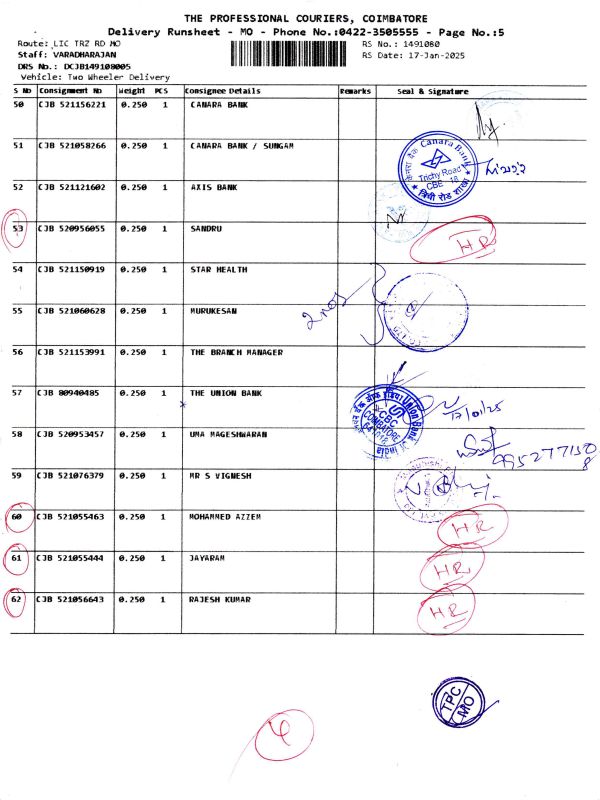 THE PROFESSIONAL COURIERS, COIMBATORE
Delivery Runsheet - MO - Phone No.:0422-3505555 - Page No.:5
Route: LIC TRZ RD MO RS No.: 1491080
Staff: VARADHARAJAN RS Date: 17-Jan-2025
DRS No.: DCJB149108005
Vehicle: Two Wheeler Delivery
S No Consignment No Weight PCS Consignee Details Remarks Seal & Signature
50 CJB 521156221 0.250 1 CANARA BANK
51 CJB 521058266 0.250 1 CANARA BANK / SUNGAM
Canara Bank
केनरा बैंक
Trichy Road
CBE - 18
त्रिची रोड शाखा
52 CJB 521121602 0.250 1 AXIS BANK
53 CJB 520956055 0.250 1 SANDRU HR
54 CJB 521150919 0.250 1 STAR HEALTH
2 nos
55 CJB 521060628 0.250 1 MURUKESAN
56 CJB 521153991 0.250 1 THE BRANCH MANAGER
57 CJB 80940485 0.250 1 THE UNION BANK
Union Bank
CBC
COIMBATORE
17/01/25
58 CJB 520953457 0.250 1 UMA MAGESHWARAN
995277150
8
59 CJB 521076379 0.250 1 MR S VIGNESH
60 CJB 521055463 0.250 1 MOHAMMED AZZEM HR
61 CJB 521055444 0.250 1 JAYARAM HR
62 CJB 521056643 0.250 1 RAJESH KUMAR HR
TPC
MO
4